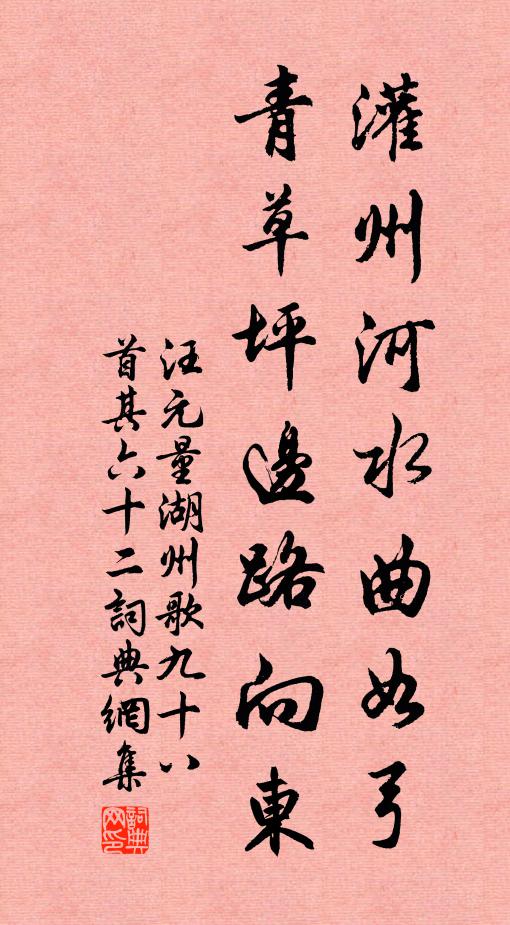 灌州河水曲如弓
青草坪邊路向東
汪元量湖州歌九十八
首其六十二詞典網集
詞典網印